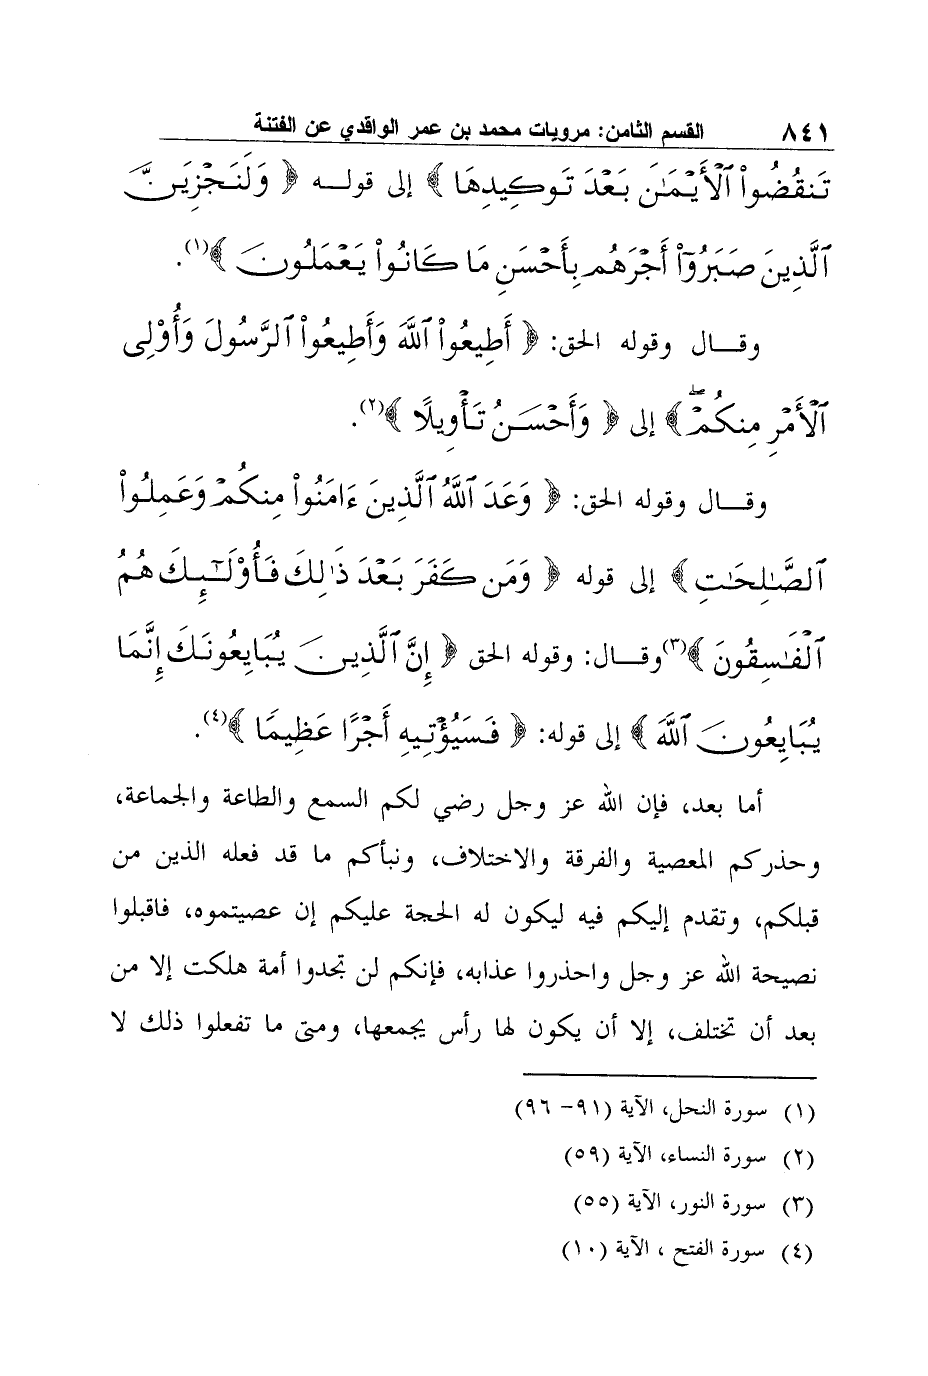 ٨٤١ القسم الثامن: مرويات محمد بن عمر الواقدي عن الفتنة
تَنقُضُواْ ٱلْأَيْمَٰنَ بَعْدَ تَوْكِيدِهَا ﴾ إلى قولـــه ﴿ وَلَنَجْزِيَنَّ
ٱلَّذِينَ صَبَرُوٓاْ أَجْرَهُم بِأَحْسَنِ مَا كَانُواْ يَعْمَلُونَ ﴾(١).
وقـــال وقوله الحق: ﴿ أَطِيعُواْ ٱللَّهَ وَأَطِيعُواْ ٱلرَّسُولَ وَأُوْلِى
ٱلْأَمْرِ مِنكُمْۖ ﴾ إلى ﴿ وَأَحْسَنُ تَأْوِيلًا ﴾(٢).
وقـــال وقوله الحق: ﴿ وَعَدَ ٱللَّهُ ٱلَّذِينَ ءَامَنُواْ مِنكُمْ وَعَمِلُواْ
ٱلصَّٰلِحَٰتِ ﴾ إلى قوله ﴿ وَمَن كَفَرَ بَعْدَ ذَٰلِكَ فَأُوْلَٰٓئِكَ هُمُ
ٱلْفَٰسِقُونَ ﴾(٣)وقـــال: وقوله الحق ﴿ إِنَّ ٱلَّذِينَ يُبَايِعُونَكَ إِنَّمَا
يُبَايِعُونَ ٱللَّهَ ﴾ إلى قوله: ﴿ فَسَيُؤْتِيهِ أَجْرًا عَظِيمًا ﴾(٤).
أما بعد، فإن الله عز وجل رضي لكم السمع والطاعة والجماعة،
وحذركم المعصية والفرقة والاختلاف، ونبأكم ما قد فعله الذين من
قبلكم، وتقدم إليكم فيه ليكون له الحجة عليكم إن عصيتموه، فاقبلوا
نصيحة الله عز وجل واحذروا عذابه، فإنكم لن تجدوا أمة هلكت إلا من
بعد أن تختلف، إلا أن يكون لها رأس يجمعها، ومتى ما تفعلوا ذلك لا
(١) سورة النحل، الآية (٩١- ٩٦)
(٢) سورة النساء، الآية (٥٩)
(٣) سورة النور، الآية (٥٥)
(٤) سورة الفتح ، الآية (١٠)